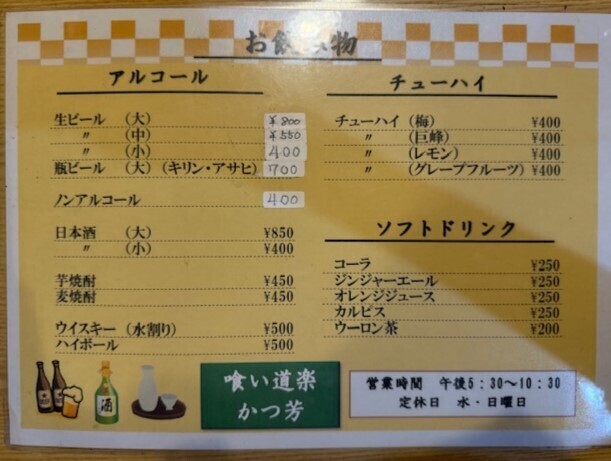 お飲み物
アルコール
生ビール （大） ¥800
〃 （中） ¥550
〃 （小） 400
瓶ビール （大）（キリン・アサヒ） 700
ノンアルコール 400
日本酒 （大） ¥850
〃 （小） ¥400
芋焼酎 ¥450
麦焼酎 ¥450
ウイスキー （水割り） ¥500
ハイボール ¥500
チューハイ
チューハイ（梅） ¥400
〃 （巨峰） ¥400
〃 （レモン） ¥400
〃 （グレープフルーツ） ¥400
ソフトドリンク
コーラ ¥250
ジンジャーエール ¥250
オレンジジュース ¥250
カルピス ¥250
ウーロン茶 ¥200
酒
喰い道楽
かつ芳
営業時間 午後5：30～10：30
定休日 水・日曜日